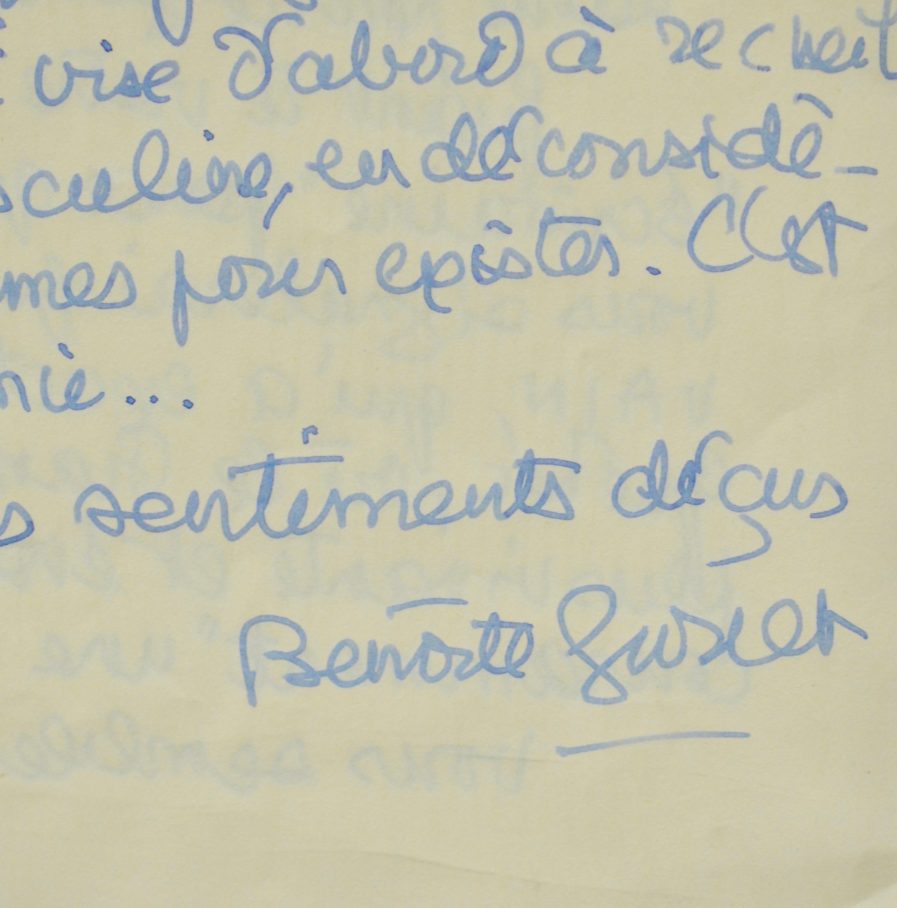 vise d'abord à
sculine, en déconsidé-
mes pour exister. C'est
nie...
s sentiments déçus
Benoîte Groult